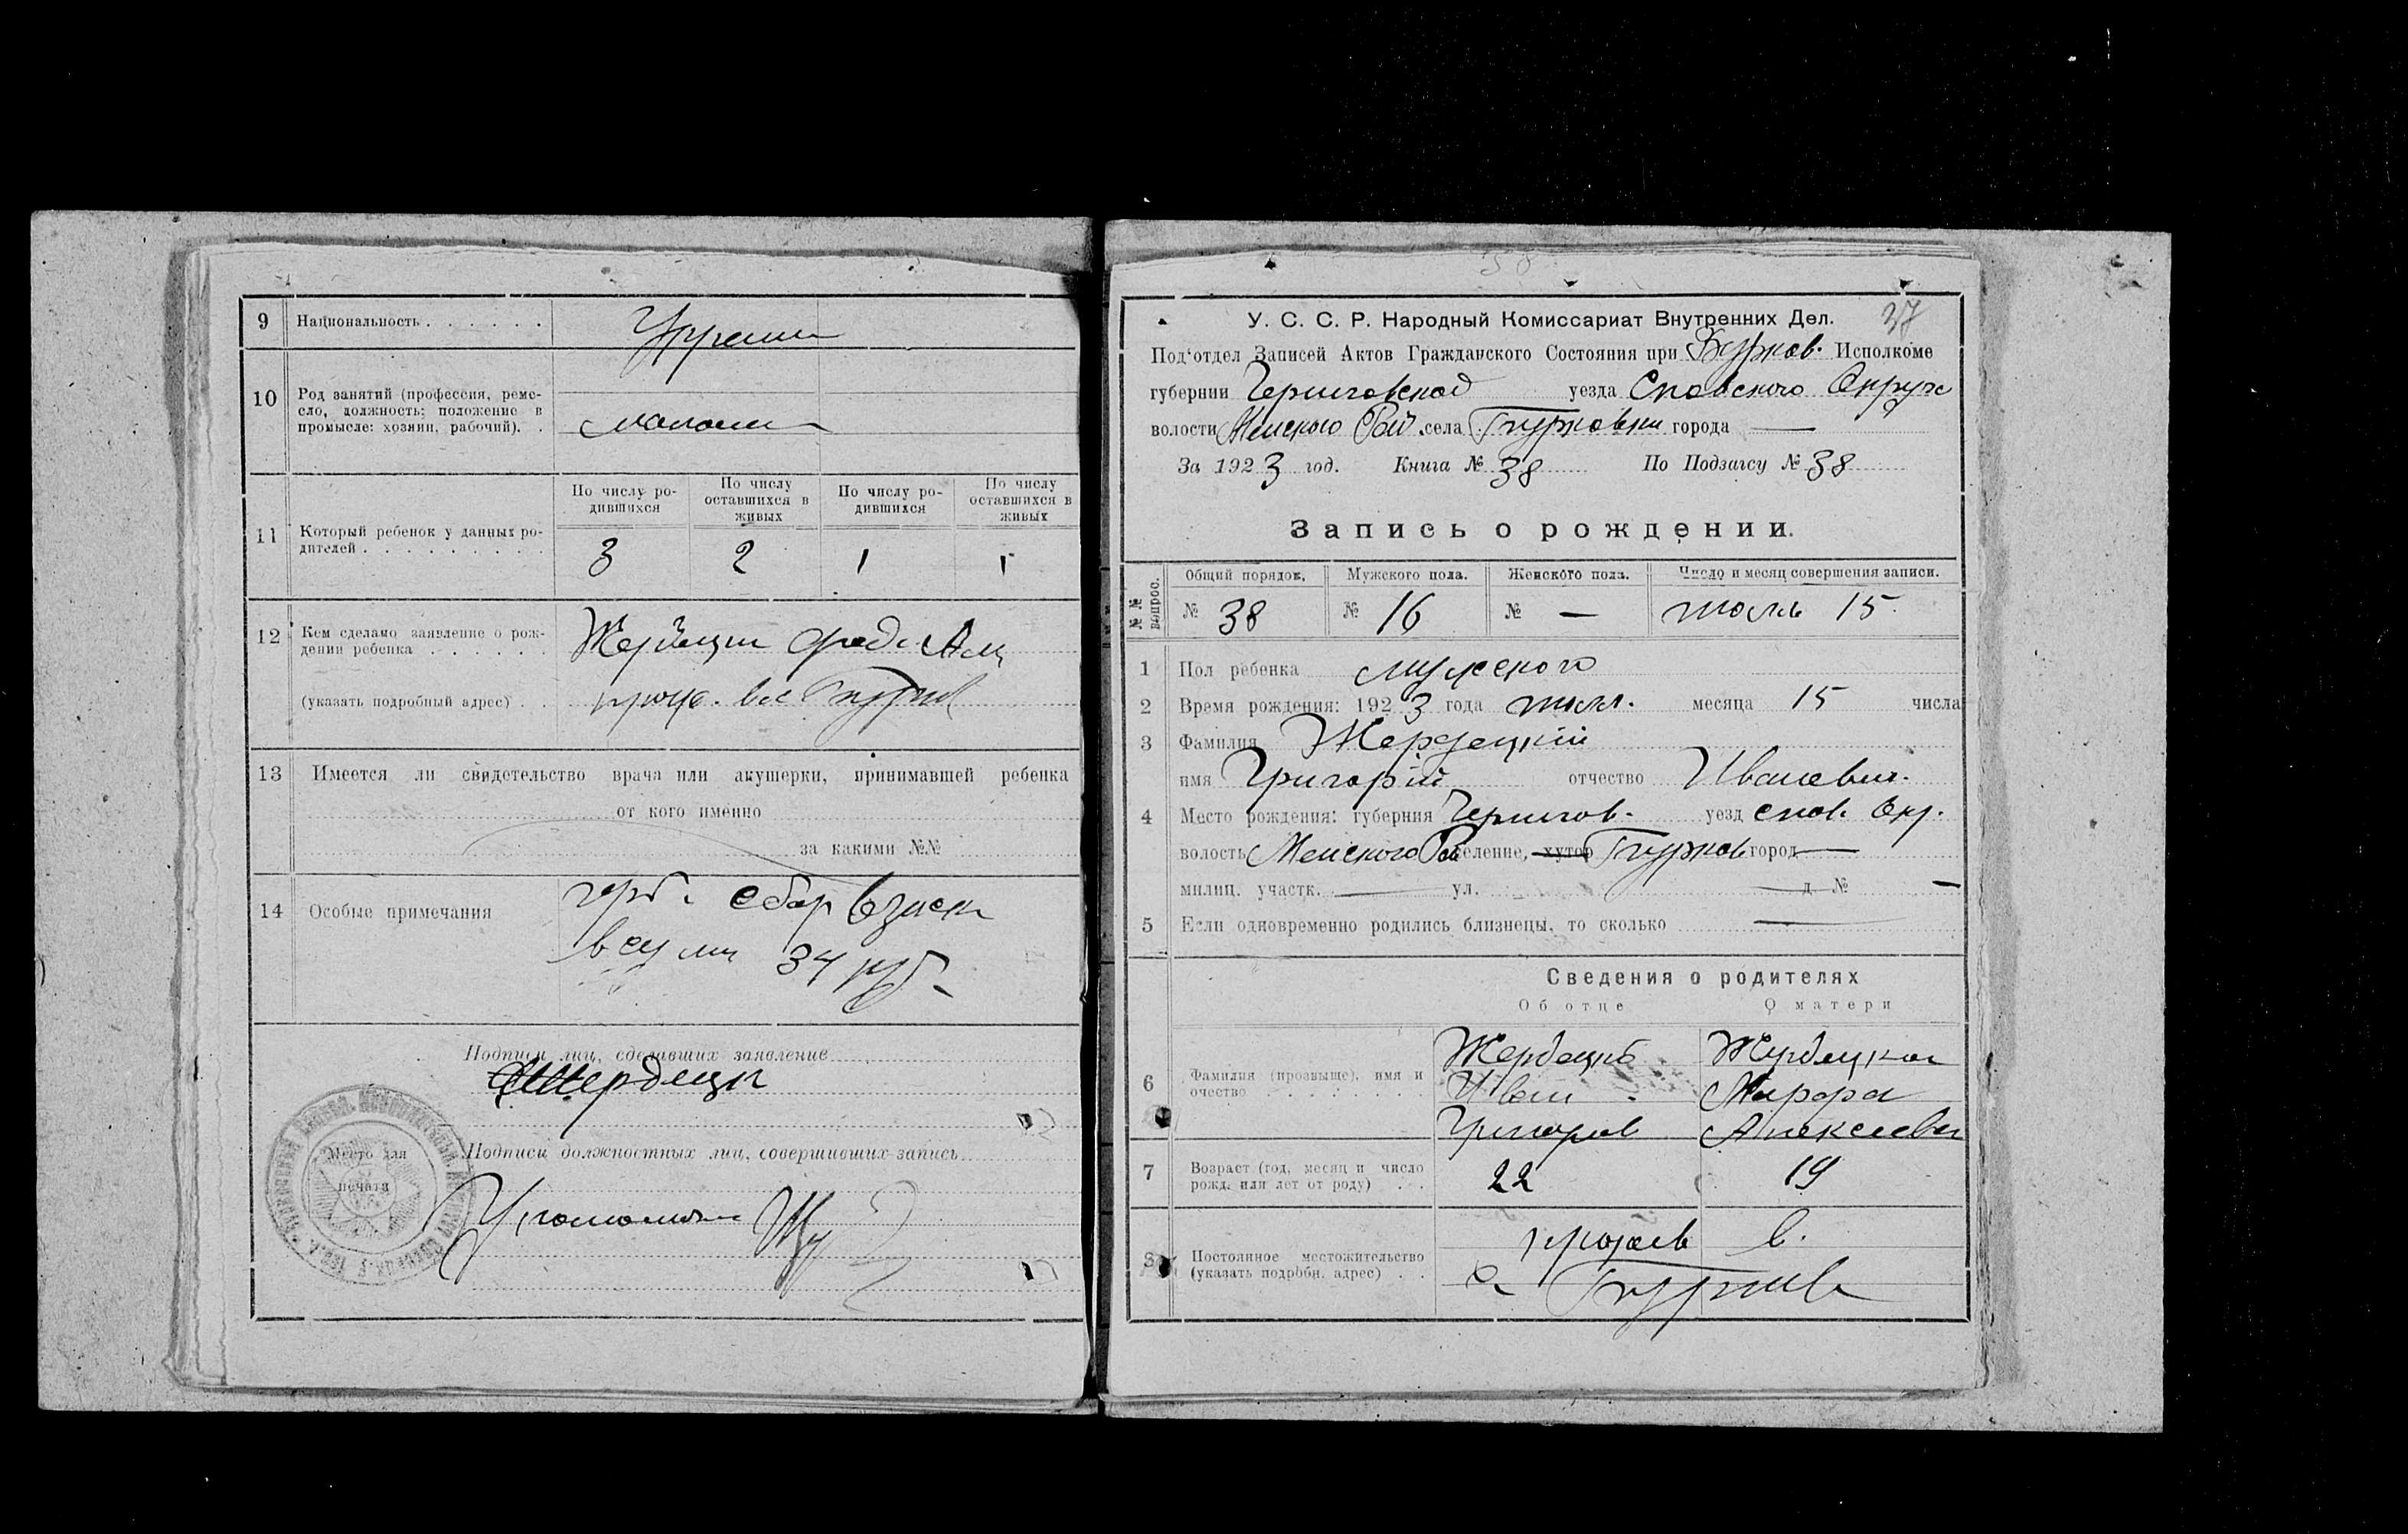 9 Национальность
10 Род занятий (профессия, реме-
сло, должность; положение в
промысле: хозяин, рабочий).
11 Который ребенок у данных ро-
дителей
По числу ро-
дившихся
По числу
оставшихся в
живых
По числу ро-
дившихся
По числу
оставшихся в
живых
3 2 1 1
12 Кем сделано заявление о рож-
дении ребенка
(указать подробный адрес)
13 Имеется ли свидетельство врача или акушерки, принимавшей ребенка
от кого именно
за какими №№
14 Особые примечания
сбор взиск
34 руб.
Подписи лиц, сделавших заявление
Подписи должностных лиц, совершивших запись
Место для
печати
37
У. С. С. Р. Народный Комиссариат Внутренних Дел.
Под'отдел Записей Актов Гражданского Состояния при Бурков. Исполкоме
губернии Черниговской уезда Сновского Округа
волости Менского Рай. села Бурковки города —
За 1923 год. Книга № 38 По Подзагсу № 38
Запись о рождении.
№№ вопрос.
Общий порядок. Мужского пола. Женского пола. Число и месяц совершения записи.
№ 38 № 16 № — июль 15
1 Пол ребенка мужского
2 Время рождения: 1923 года июл. месяца 15 числа
3 Фамилия Жердецкий
имя Григорий отчество Иванович.
4 Место рождения: губерния Чернигов. уезд снов. окр.
волость Менского Рай селение, хутор Бурков город —
милиц. участк. — ул. д № —
5 Если одновременно родились близнецы, то сколько —
Сведения о родителях
Об отце О матери
6 Фамилия (прозвище), имя и
очество
Жердецкая
Иван
Алексеевн
7 Возраст (год, месяц и число
рожд. или лет от роду)
22 19
8 Постоянное местожительство
(указать подробн. адрес)
с.